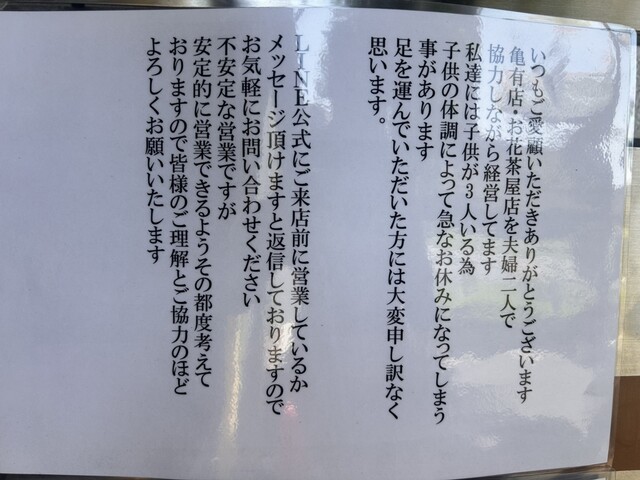 いつもご愛顧いただきありがとうございます
亀有店・お花茶屋店を夫婦二人で
協力しながら経営してます
私達には子供が3人いる為
子供の体調によって急なお休みになってしまう
事があります
足を運んでいただいた方には大変申し訳なく
思います。
LINE公式にご来店前に営業しているか
メッセージ頂けますと返信しておりますので
お気軽にお問い合わせください
不安定な営業ですが
安定的に営業できるようその都度考えて
おりますので皆様のご理解とご協力のほど
よろしくお願いいたします